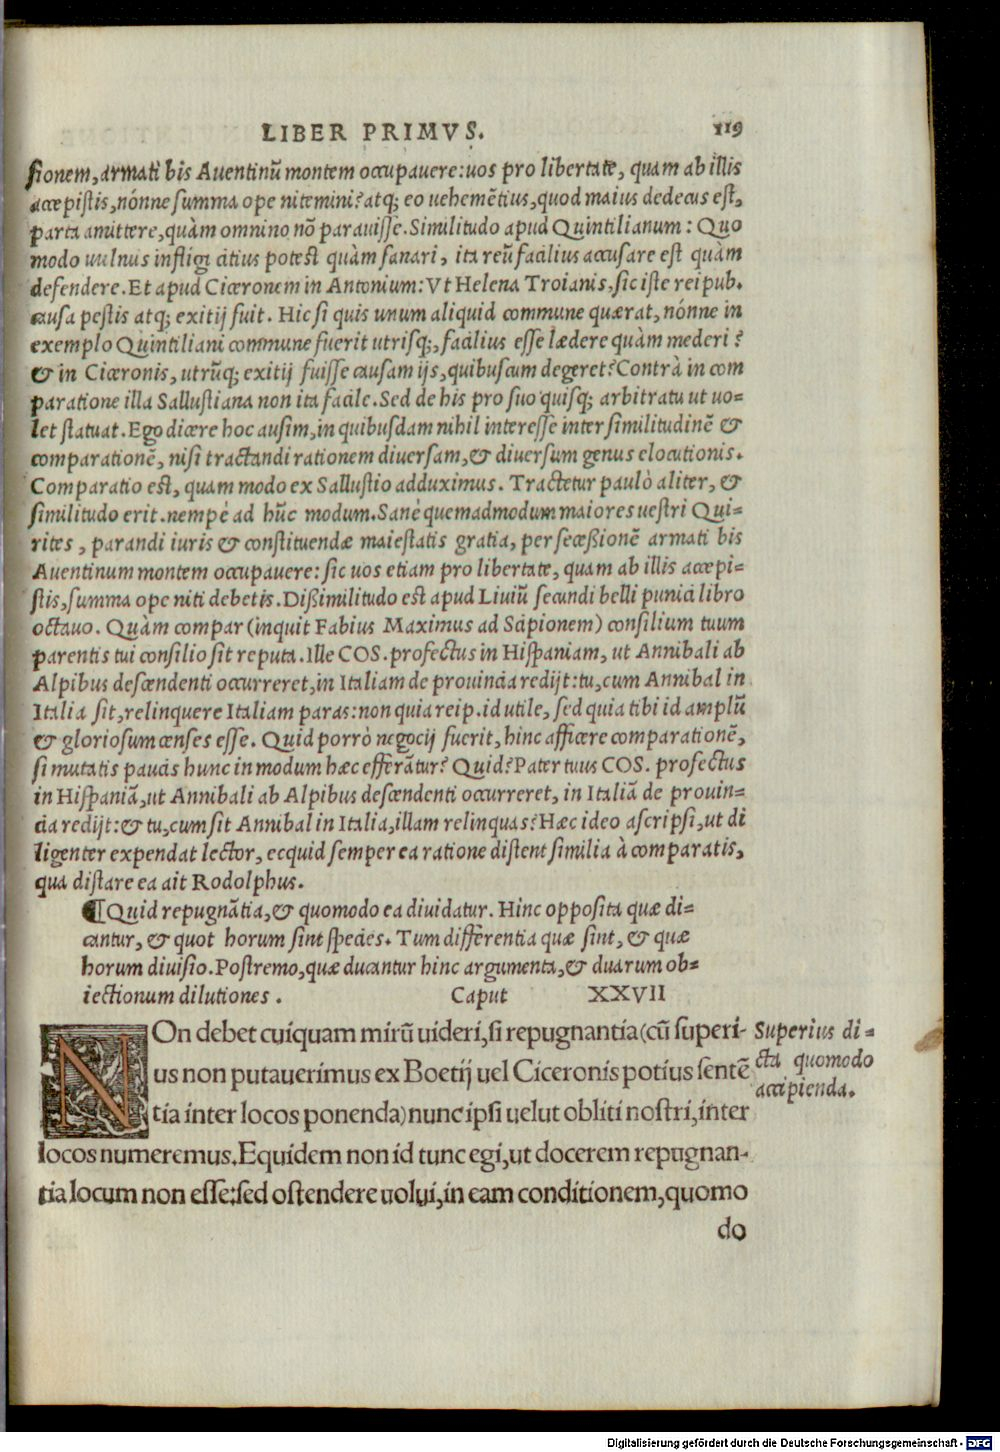 LIBER PRIMVS. 119
sionem, armati bis Auentinū montem occupauere: uos pro libertate, quam ab illis
accepistis, nónne summa ope nitemini? atq; eo uehemētius, quod maius dedecus est,
parta amittere, quàm omnino nō parauisse. Similitudo apud Quintilianum: Quo
modo uulnus infligi citius potest quàm sanari, ita reū facilius accusare est quàm
defendere. Et apud Ciceronem in Antonium: Vt Helena Troianis, sic iste reipub.
causa pestis atq; exitij fuit. Hic si quis unum aliquid commune quærat, nónne in
exemplo Quintiliani commune fuerit utrisq;, facilius esse lædere quàm mederi?
& in Ciceronis, utrūq; exitij fuisse causam ijs, quibuscum degeret? Contrà in com
paratione illa Sallustiana non ita facile. Sed de his pro suo quisq; arbitratu ut uo-
let statuat. Ego dicere hoc ausim, in quibusdam nihil interesse inter similitudinē &
comparationē, nisi tractandi rationem diuersam, & diuersum genus elocutionis.
Comparatio est, quam modo ex Sallustio adduximus. Tractetur paulò aliter, &
similitudo erit. nempè ad hūc modum. Sanè quemadmodum maiores uestri Qui-
rites, parandi iuris & constituendæ maiestatis gratia, per secessionē armati bis
Auentinum montem occupauere: sic uos etiam pro libertate, quam ab illis accepi-
stis, summa ope niti debetis. Dissimilitudo est apud Liuiū secundi belli punici libro
octauo. Quàm compar (inquit Fabius Maximus ad Scipionem) consilium tuum
parentis tui consilio sit reputa. Ille COS. profectus in Hispaniam, ut Annibali ab
Alpibus descendenti occurreret, in Italiam de prouincia redijt: tu, cum Annibal in
Italia sit, relinquere Italiam paras: non quia reip. id utile, sed quia tibi id amplū
& gloriosum censes esse. Quid porrò negocij fuerit, hinc afficere comparationē,
si mutatis paucis hunc in modum hæc efferātur? Quid? Pater tuus COS. profectus
in Hispaniā, ut Annibali ab Alpibus descendenti occurreret, in Italiā de prouin-
cia redijt: & tu, cum sit Annibal in Italia, illam relinquas? Hæc ideo ascripsi, ut di
ligenter expendat lector, ecquid semper ea ratione distent similia à comparatis,
qua distare ea ait Rodolphus.
¶ Quid repugnātia, & quomodo ea diuidatur. Hinc opposita quæ di-
cantur, & quot horum sint species. Tum differentia quæ sint, & quæ
horum diuisio. Postremo, quæ ducantur hinc argumenta, & duarum ob-
iectionum dilutiones. Caput XXVII
NOn debet cuiquam mirū uideri, si repugnantia (cū superi-
us non putauerimus ex Boetij uel Ciceronis potius sentē
tia inter locos ponenda) nunc ipsi uelut obliti nostri, inter
locos numeremus. Equidem non id tunc egi, ut docerem repugnan-
tia locum non esse: sed ostendere uolui, in eam conditionem, quomo
do
Superius di-
cta quomodo
accipienda.
Digitalisierung gefördert durch die Deutsche Forschungsgemeinschaft - DFG